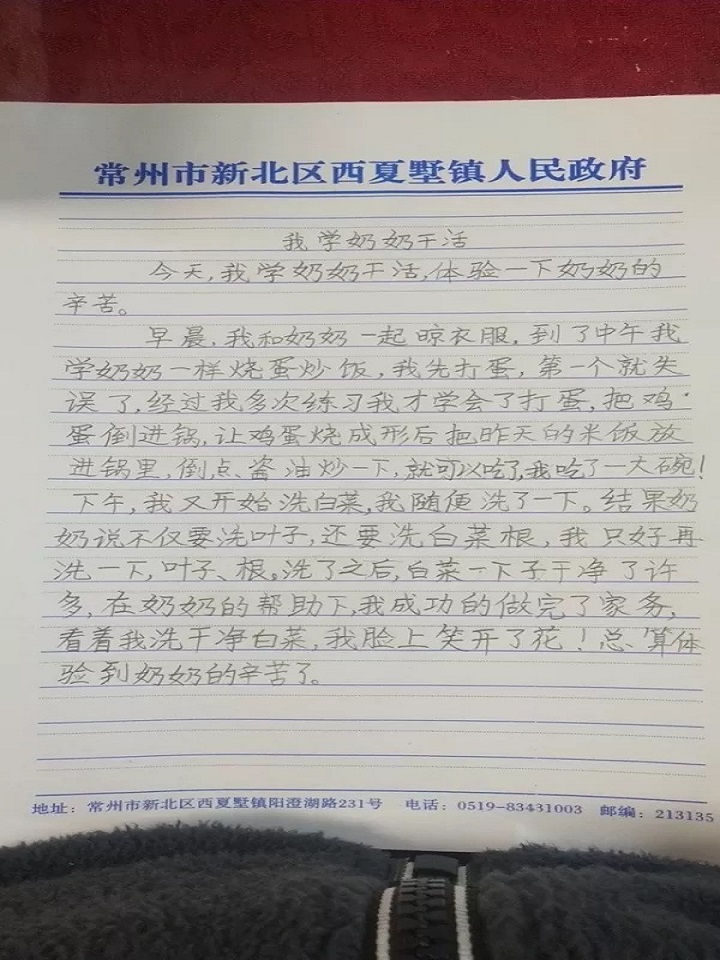 常州市新北区西夏墅镇人民政府
我学奶奶干活
今天,我学奶奶干活,体验一下奶奶的
辛苦。
早晨,我和奶奶一起晾衣服,到了中午我
学奶奶一样烧蛋炒饭,我先打蛋,第一个就失
误了,经过我多次练习我才学会了打蛋,把鸡
蛋倒进锅,让鸡蛋烧成形后把昨天的米饭放
进锅里,倒点、酱油炒一下,就可以吃了,我吃了一大碗!
下午,我又开始洗白菜,我随便洗了一下。结果奶
奶说不仅要洗叶子,还要洗白菜根,我只好再
洗一下,叶子、根。洗了之后,白菜一下子干净了许
多,在奶奶的帮助下,我成功的做完了家务,
看着我洗干净白菜,我脸上笑开了花!总算体
验到奶奶的辛苦了。
地址:常州市新北区西夏墅镇阳澄湖路231号 电话:0519-83431003 邮编:213135